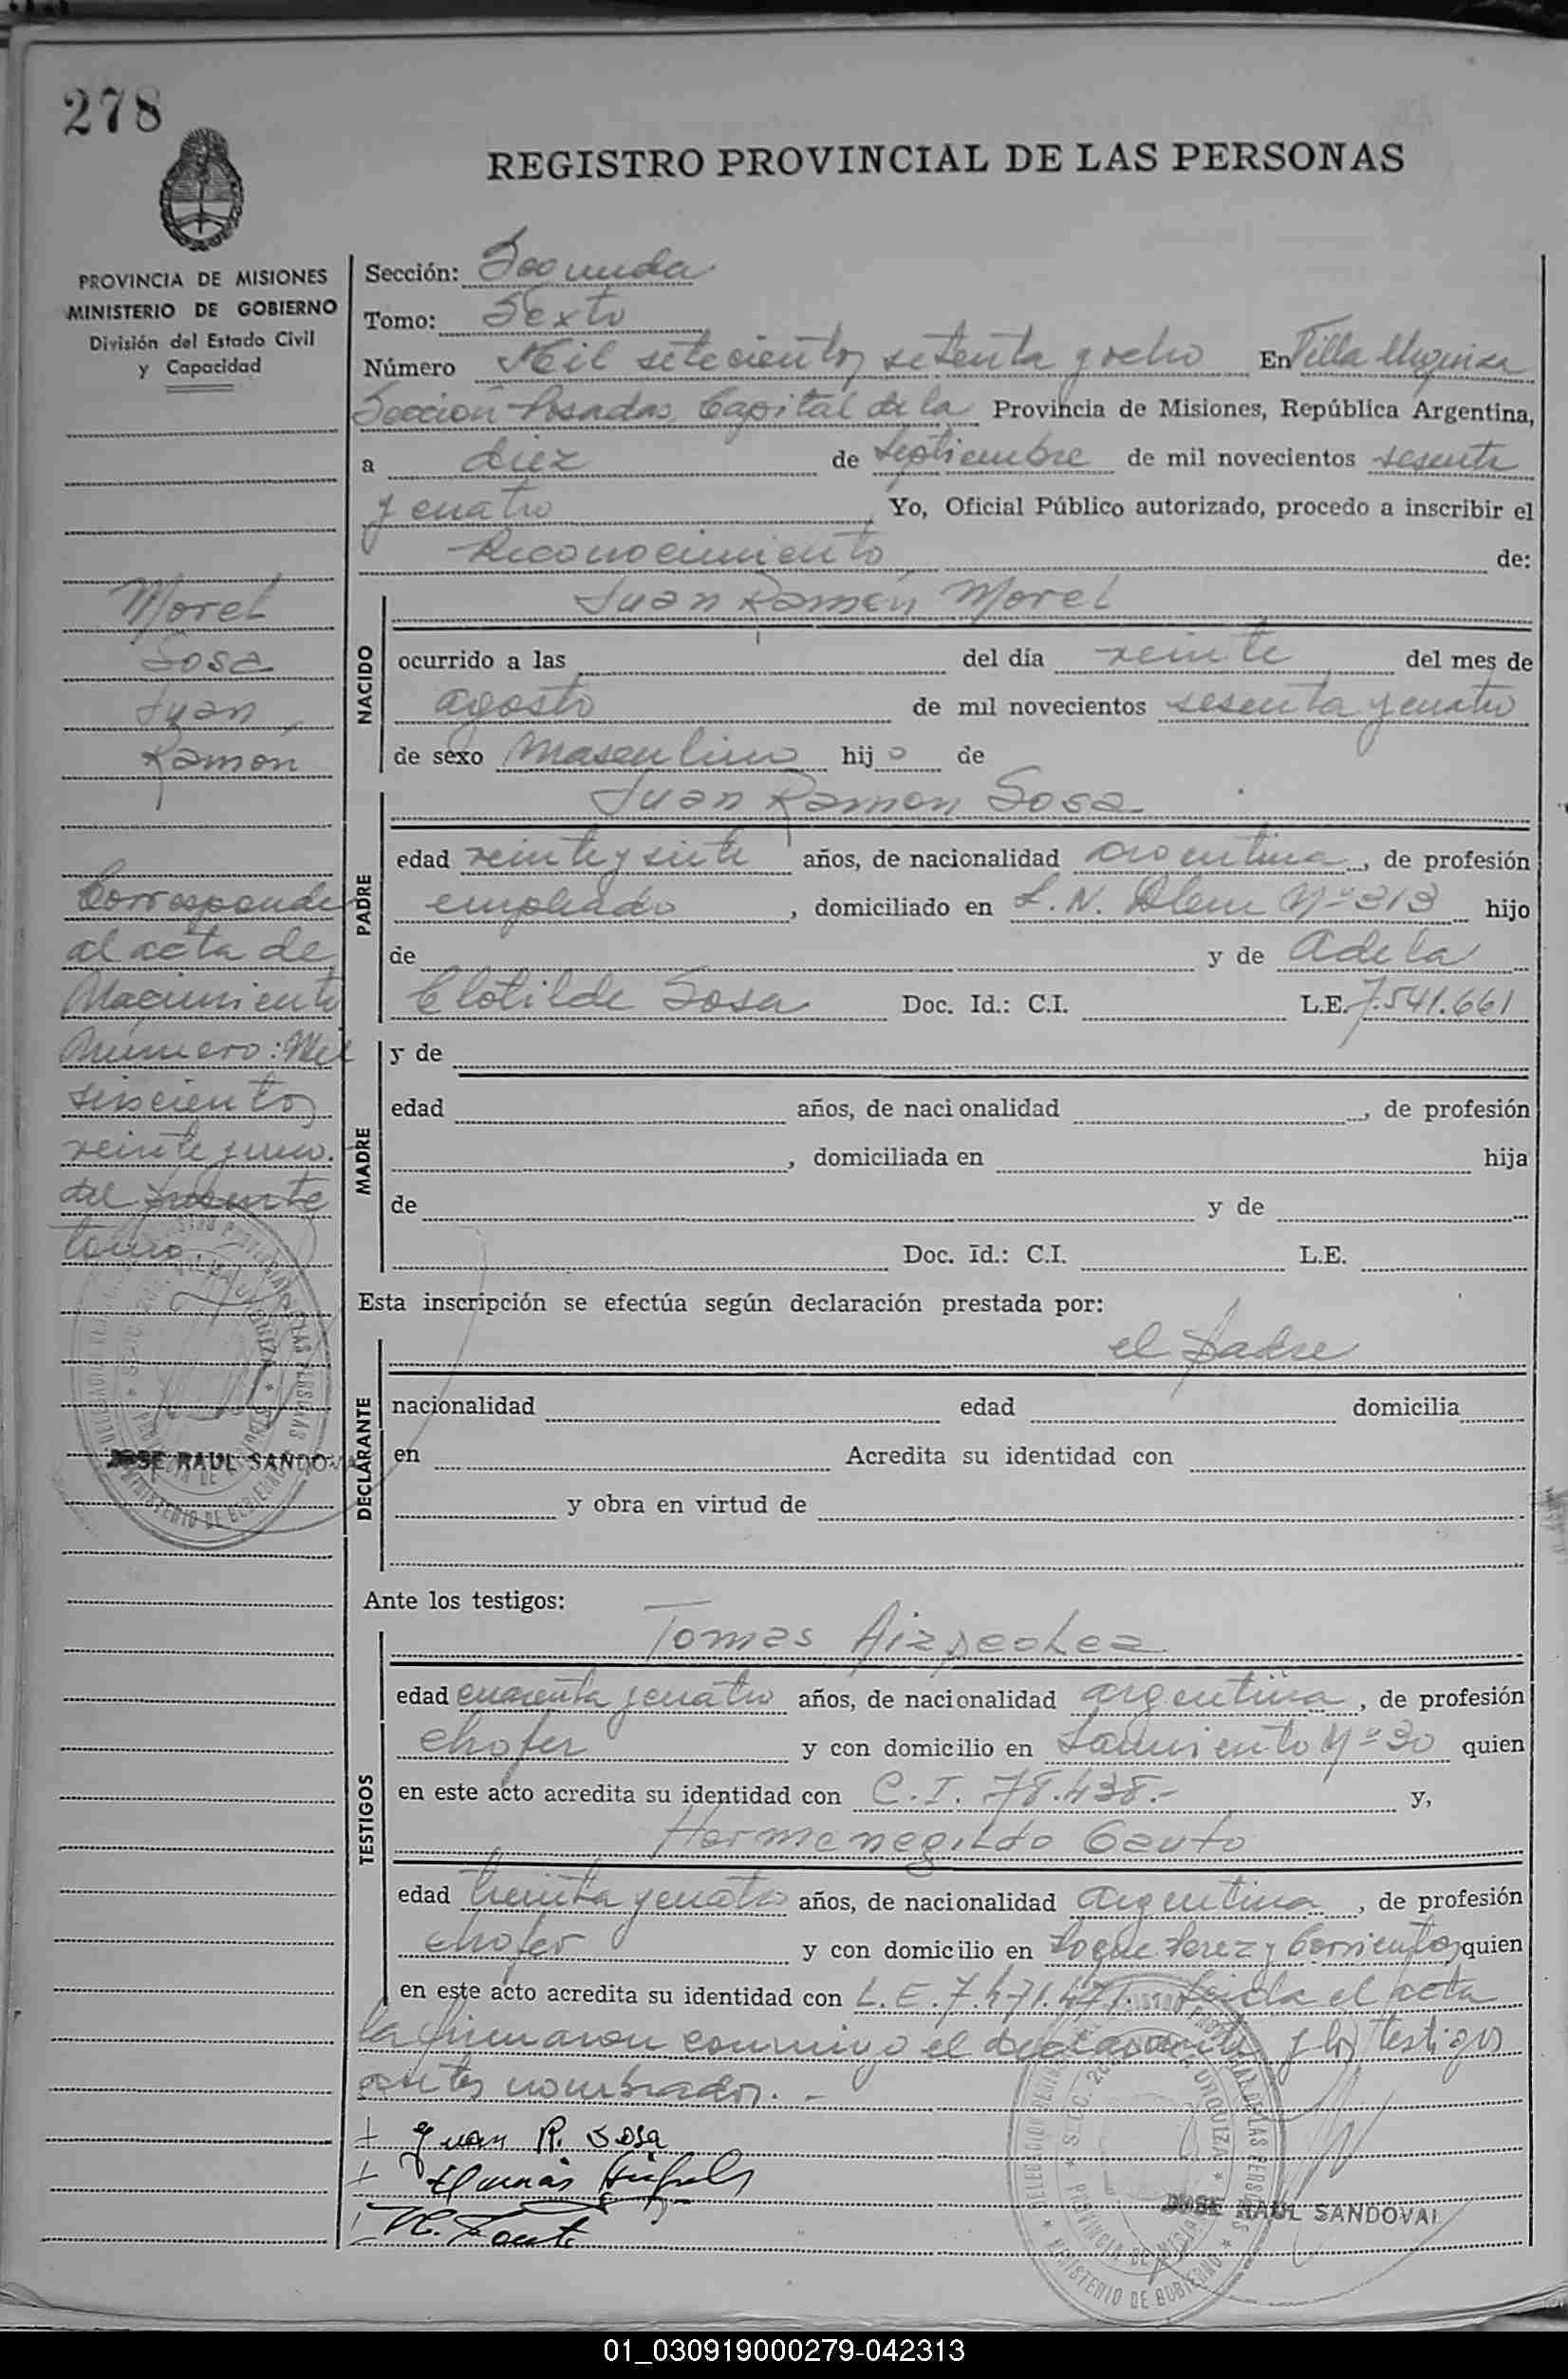 278
REGISTRO PROVINCIAL DE LAS PERSONAS
PROVINCIA DE MISIONES
MINISTERIO DE GOBIERNO
División del Estado Civil
y Capacidad
Morel
Sosa
Juan
Ramón
Corresponde
al acta de
Nacimiento
Número: Mil
seiscientos
veinte y uno.
del presente
tomo.
JOSE RAUL SANDOVAL
Sección: Segunda
Tomo: Sexto
Número Mil setecientos setenta y ocho En Villa Urquiza
Sección Posadas Capital de la Provincia de Misiones, República Argentina,
a diez de Septiembre de mil novecientos sesenta
y cuatro Yo, Oficial Público autorizado, procedo a inscribir el
Reconocimiento de:
NACIDO
Juan Ramón Morel
ocurrido a las del día veinte del mes de
agosto de mil novecientos sesenta y cuatro
de sexo Masculino hijo de
PADRE
Juan Ramon Sosa
edad veinte y siete años, de nacionalidad argentina, de profesión
empleado, domiciliado en L. N. Alem Nº 313 hijo
de y de Adela
Clotilde Sosa Doc. Id.: C.I. L.E. 7.541.661
MADRE
y de
edad años, de nacionalidad , de profesión
, domiciliada en hija
de y de
Doc. Id.: C.I. L.E.
Esta inscripción se efectúa según declaración prestada por:
DECLARANTE
el padre
nacionalidad edad domicilia
en Acredita su identidad con
y obra en virtud de
Ante los testigos:
TESTIGOS
Tomas
edad cuarenta y cuatro años, de nacionalidad argentina, de profesión
chofer y con domicilio en Sarmiento Nº 30 quien
en este acto acredita su identidad con C.I. 78.438.- y,
Hermenegildo
edad treinta y cuatro años, de nacionalidad argentina, de profesión
chofer y con domicilio en Roque Perez y Corrientes quien
en este acto acredita su identidad con L.E. 7.471.471. Leída el acta
la firmaron conmigo el declarante y los testigos
antes nombrados. -
Juan R. Sosa
JOSE RAUL SANDOVAL
01_030919000279-042313